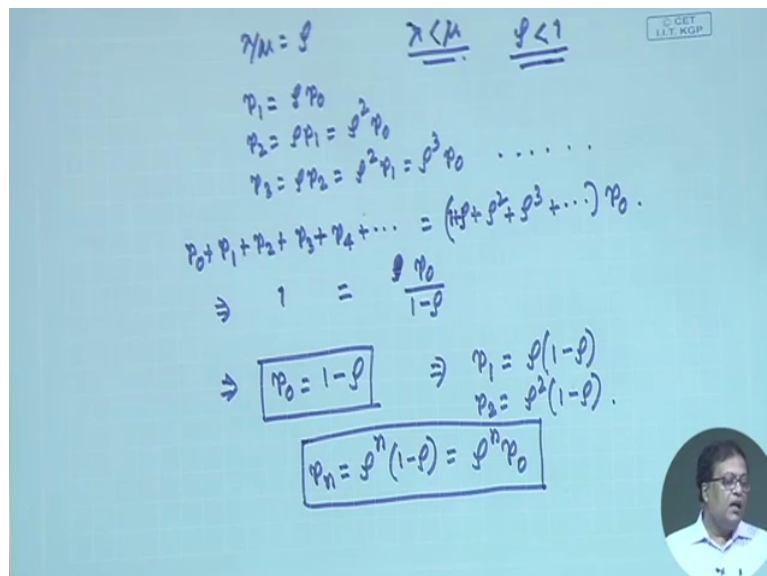 λ/μ = ρ λ < μ ρ < 1
© CET
I.I.T. KGP
p₁ = ρp₀
p₂ = ρp₁ = ρ²p₀
p₃ = ρp₂ = ρ²p₁ = ρ³p₀ ......
p₀ + p₁ + p₂ + p₃ + p₄ + ... = (1+ρ+ρ²+ρ³+...) p₀.
⇒ 1 = p₀/(1-ρ)
⇒ p₀ = 1-ρ ⇒ p₁ = ρ(1-ρ)
p₂ = ρ²(1-ρ).
pₙ = ρⁿ(1-ρ) = ρⁿp₀